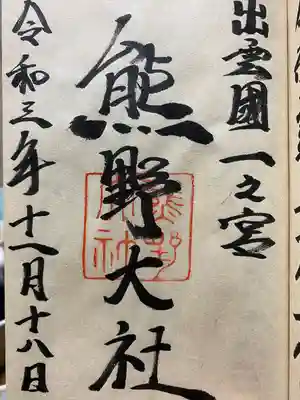 出雲國一之宮
熊野大社
令和三年十一月十八日